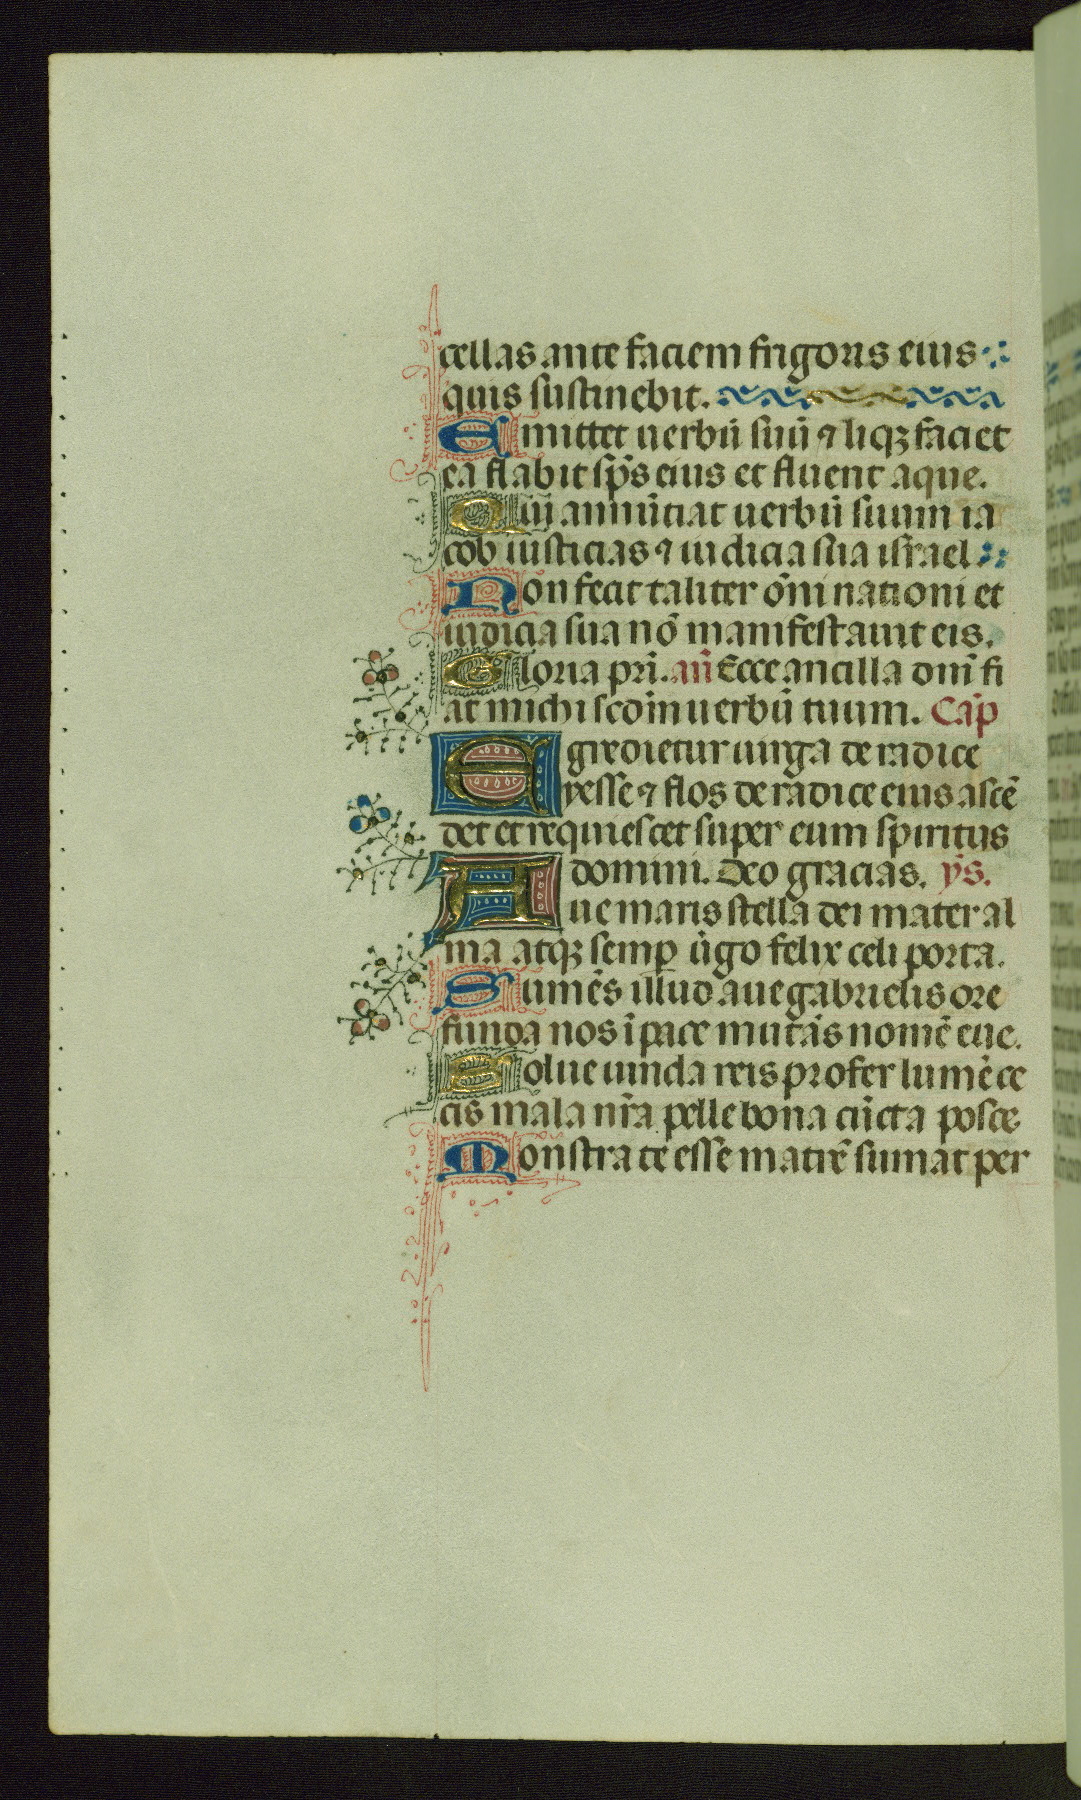 cellas ante faciem frigoris eius
quis sustinebit.
Emittet uerbū suū ⁊ liqȝ faciet
ea flabit sp̄s eius et fluent aque.
Qui annūciat uerbū suum ia
cob iusticias ⁊ iudicia sua israel
Non fecit taliter ōni nationi et
iudicia sua nō manifestauit eis.
Gloria pr̄i. an̄ Ecce ancilla dn̄i fi
at michi scd̄m uerbū tuum. Cap̄
Egredietur uirga de radice
yesse ⁊ flos de radice eius ascē
det et requiescet super eum spiritus
domini. Deo gracias. ys.
Aue maris stella dei mater al
ma atqȝ semꝑ ūgo felix celi porta.
Sumēs illud aue gabrielis ore
funda nos ī pace mutās nomē eue.
Solue uincla reis profer lumē ce
cis mala nr̄a pelle bona cūcta posce.
Monstra te esse matrē sumat per